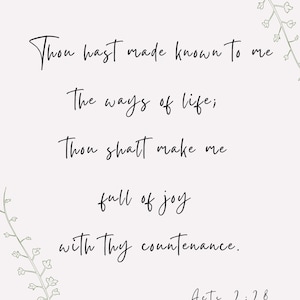 Thou hast made known to me
the ways of life;
thou shalt make me
full of joy
with thy countenance.
Acts 2:28